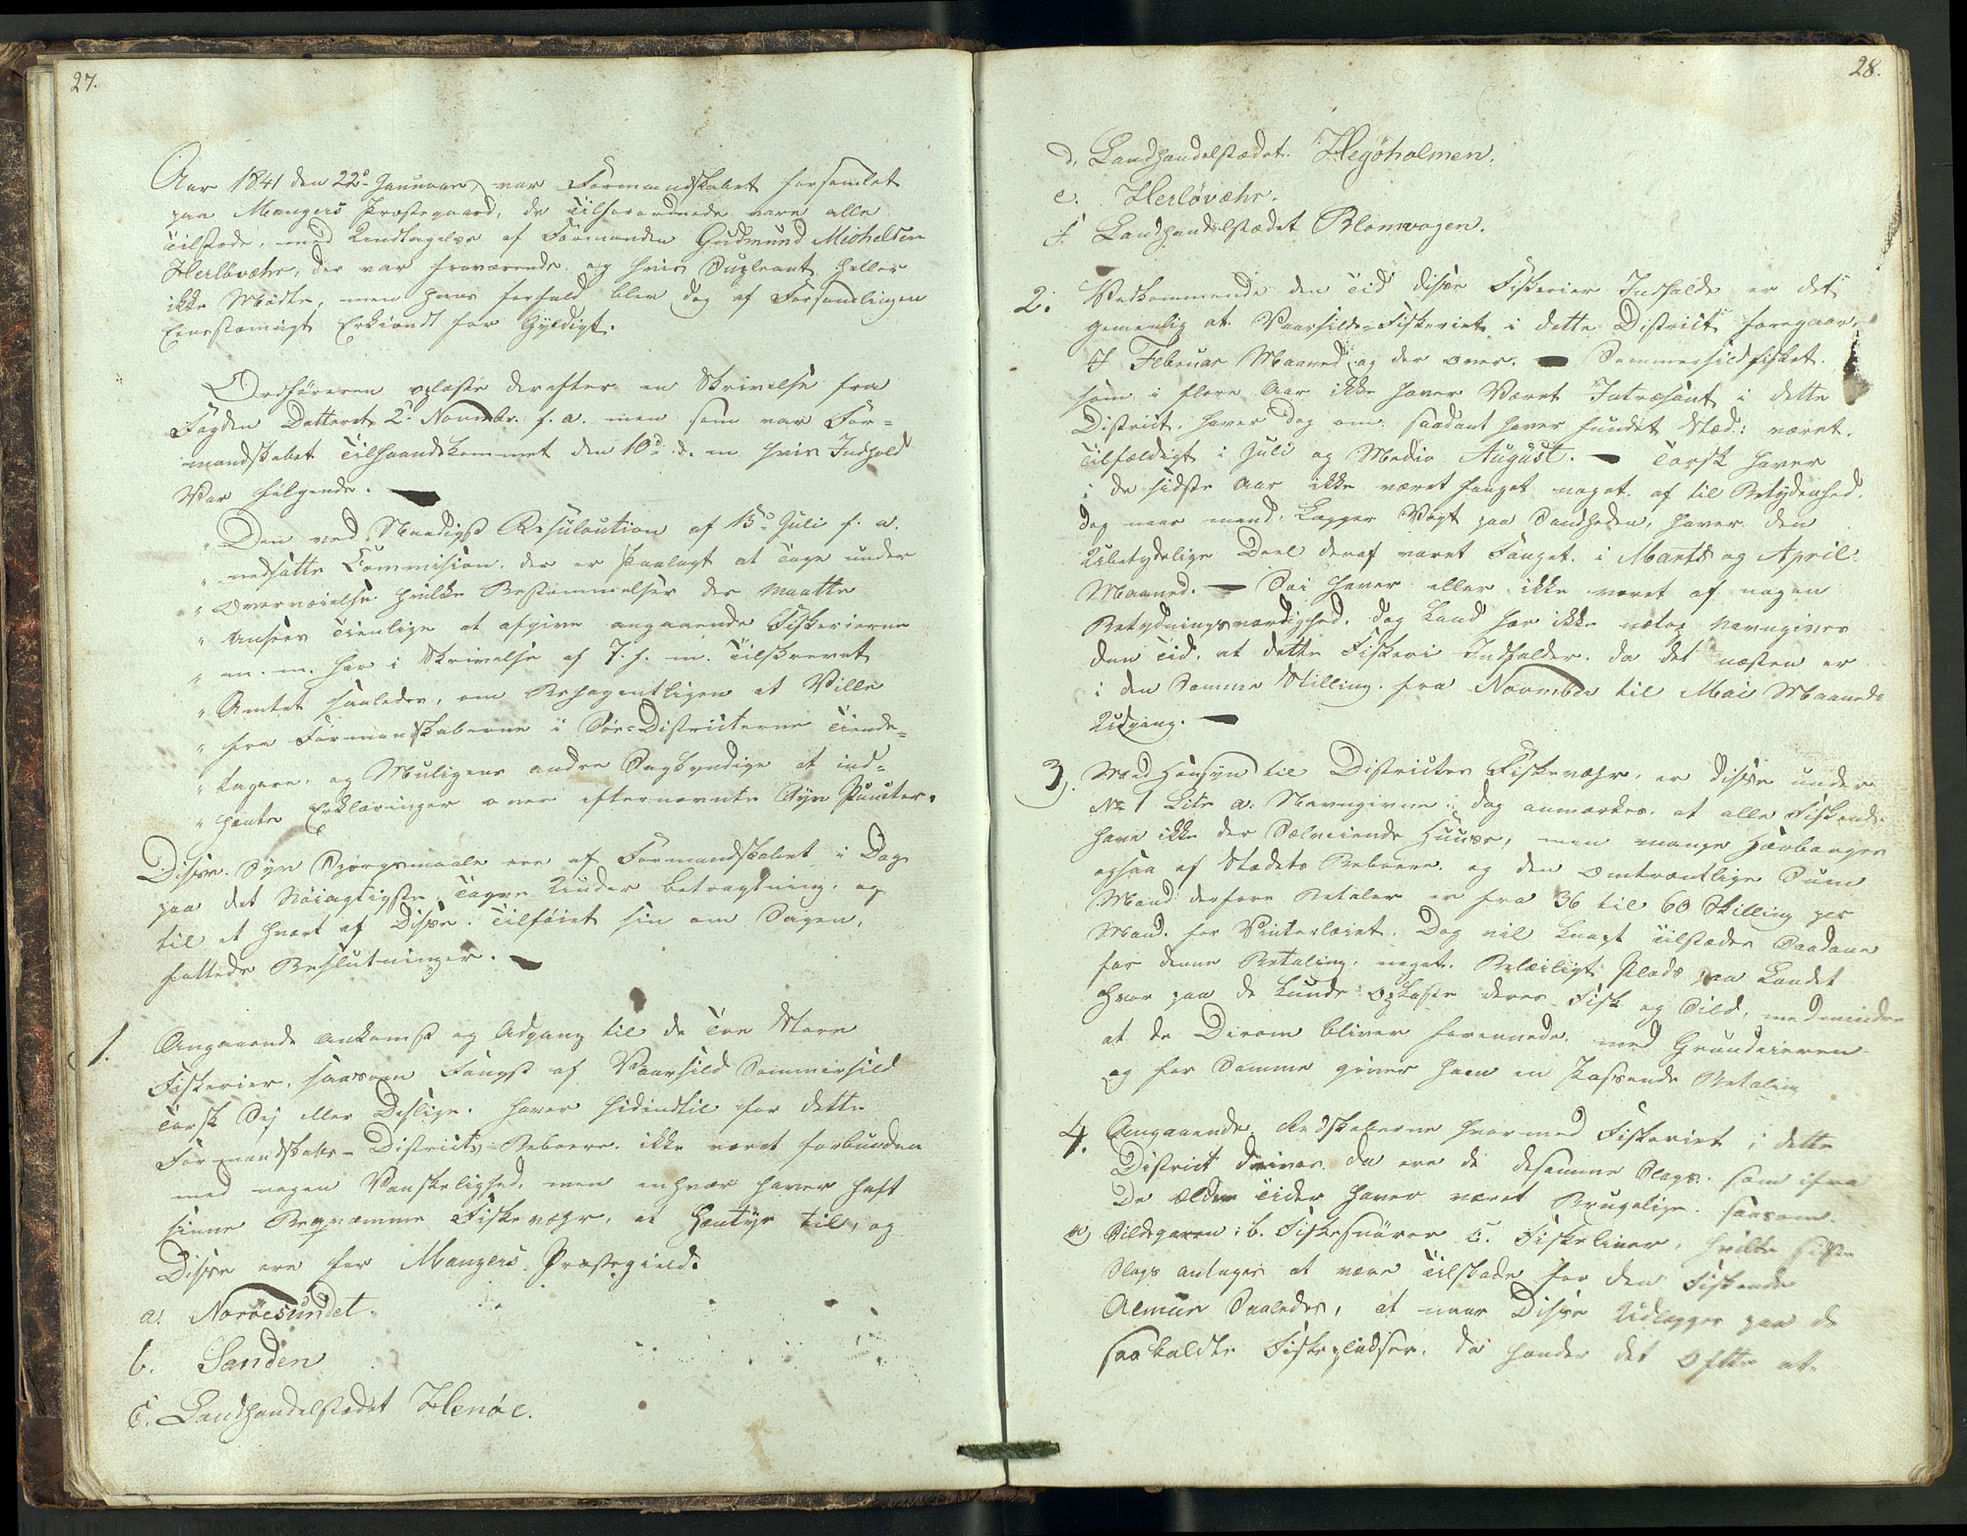 27.
Aar 1841 den 22de Januar var Formandskabet forsamlet
paa Mangers Præstegaard, de Tilforordnede vare alle
tilstæde, med Undtagelse af Formanden Gudmund Michelsen
Herløvæhr, der var fraværende og hvis Supleant heller
ikke Mødte, men hans forfald blev dog af Forsamlingen
Eenstemmigt Erkiendt for Gyldigt.
Ordføreren oplæste derefter en Skrivelse fra
Fogden Datteret 2. Novembr. f. a. men som var For-
mandskabet Tilhaandekommet den 10d. d. m hvis Indhold
Var følgende.
" Den ved Naadigst Resulution af 13d Juli f. a.
" nedsatte Commision, der er Paalagt at Tage under
" Overveielse hvilke Bestemmelser der maatte
" Ansees tienlige at afgive angaaende Fiskerierne
" m. m. har i Skrivelse af 7. f. m. Tilskrevet
" Amtet saaledes, om Behagentligen at Ville
" fra Formandskaberne i Sør-Districterne Tiende-
" tagere, og Muligens andre Sagkyndige at ind-
" hente Erklæringer over efternævnte Syv Puncter.
Disse Syv Spørgsmaale ere af Formandskabet i Dag
paa det Nøiagtigste Tagne Under betragtning, og
til et hvert af Disse Tilføiet sin om Sagen,
fattede Beslutninger.
1. Angaaende ankomst og Adgang til de Tre Store
Fiskerier, saasom Fangst af Vaarsild Sommersild
Torsk Sej eller Deslige. haver hidindtil for dette
Formandskabs-Districts Beboere ikke været forbunden
med nogen Vanskelighed, men enhver haver haft
sinne Beqvæmme Fiskevæhr, at Hentye til, og
Disse ere for Mangers Præstegield.
a. Norøesundet.
b. Sanden
c. Landhandelstædet Henøe.
28.
d. Landhandelstædet Hegøholmen.
e. Herløvæhr.
f. Landhandelstædet Blomvogen.
2. Vedkommende den Tid disse Fiskerier Indfalde er det
gemenlig at Vaarsilde-Fiskeriet i dette District foregaar,
I Februar Maaned og der over. Sommersildfisket
som i flere Aar ikke haver Været Intresant i dette
District, haver dog om saadant haver fundet Sted: været
Tilfældigt i Juli og Medio August. Torsk haver
i de sidste Aar ikke været fanget noget af til Betydenhed,
dog naar mand Lægger Vægt paa Sandheden, haver den
Ubetydelige Deel deraf været Fanget i Marts og April
Maaned. Sei haver eller ikke været af nogen
Betydningsværdighed, dog kand her ikke netop navngives
den Tid, at dette Fiskeri Indfalder, da det næsten er
i den Samme Stilling fra November til Mai Maaneds
Udgang.
3. Med Hensyn til Districtes Fiskevæhr, er disse under
No 1 Litr a: Navngivne: dog anmærkes, at alle Fiskende
have ikke der Selveiende Huuse, men mange Herberges
ogsaa af Stædets Beboere, og den omtrentlige Sum
Mand derfore Betaler er fra 36 til 60 Skilling per
Mand, for Vinterleiet. Dog vil knapt Tilstædes Saadane
for denne Betaling, noget Beleiligt Plads paa Landet
hvor paa de kunde Oplaste deres Fisk og Sild, medmindre
at de Derom bliver forenede, med Grundeieren
og for Samme giver ham en Passende Betaling
4. Angaaende Redskaberne hvormed Fiskeriet i dette
District drives, da ere de desamme Slags, som ifra
De Eldre Tider haver været Brugelige, saasom
a) Sildegaren: b. Fiskesnører c. Fiskeliner, hvilke sidste
Slags antages at være Tilskade for den Fiskende
Almue Saaledes, at naar Disse Udlægges paa de
saakaldte Fiskepladser, da hænder det Ofte at